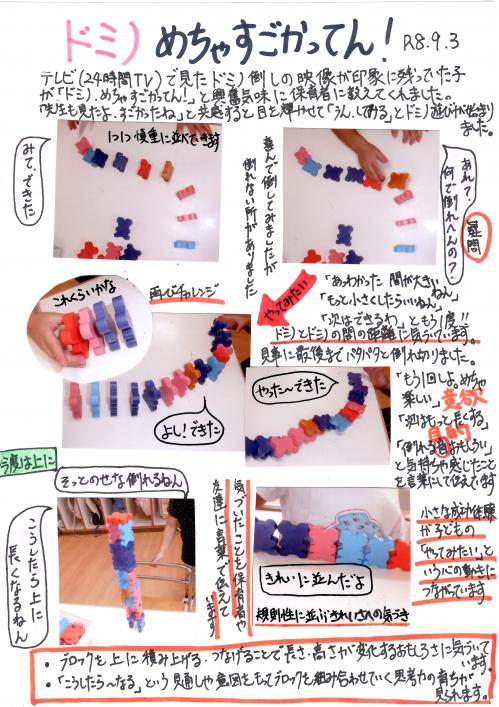 ドミノ めちゃすごかってん! R8.9.3
テレビ(24時間TV)で見たドミノ倒しの映像が印象に残っていた子
が「ドミノ、めちゃすごかってん!」と興奮気味に保育者に教えてくれました。
「先生も見たよ、すごかったね」と共感すると目を輝かせて「うん、してみる」とドミノ遊びが始まり
ました。
みて、できた
1つ1つ慎重に並べています
喜んで倒してみましたが
倒れない所がありました
あれ?
何で倒れへんの?
疑問
これくらいかな
再びチャレンジ
やってみたい
「あっわかった 間が大きいねん」
「もっと小さくしたらいいねん」
「次はできるわ、ともう1度!!
ドミノとドミノの間の距離に気づいています。
見事に最後までパタパタと倒れ切りました。
よし!できた
やった〜できた
「もう1回しよ。めちゃ
楽しい」意欲
「次はもっと長くする」
目的
「倒れる音おもしろい」
と気持ちや感じたこと
を言葉にして伝えています
今度は上に
そっとのせな倒れるねん
こうしたら上に
長くなるねん
気づいたことを保育者や
友達に言葉で伝えて
います
きれいに並んだよ
規則性に並ぶきれいさへの気づき
小さな成功体験
が子どもの
「やってみたい」と
いう心の動きに
つながっています
・ブロックを上に積み上げる、つなげることで長さ・高さが変化するおもしろさに気づいて
います。
・「こうしたら〜なる」という見通しや意図をもってブロックを組み合わせていく思考力の育ちが
見られます。